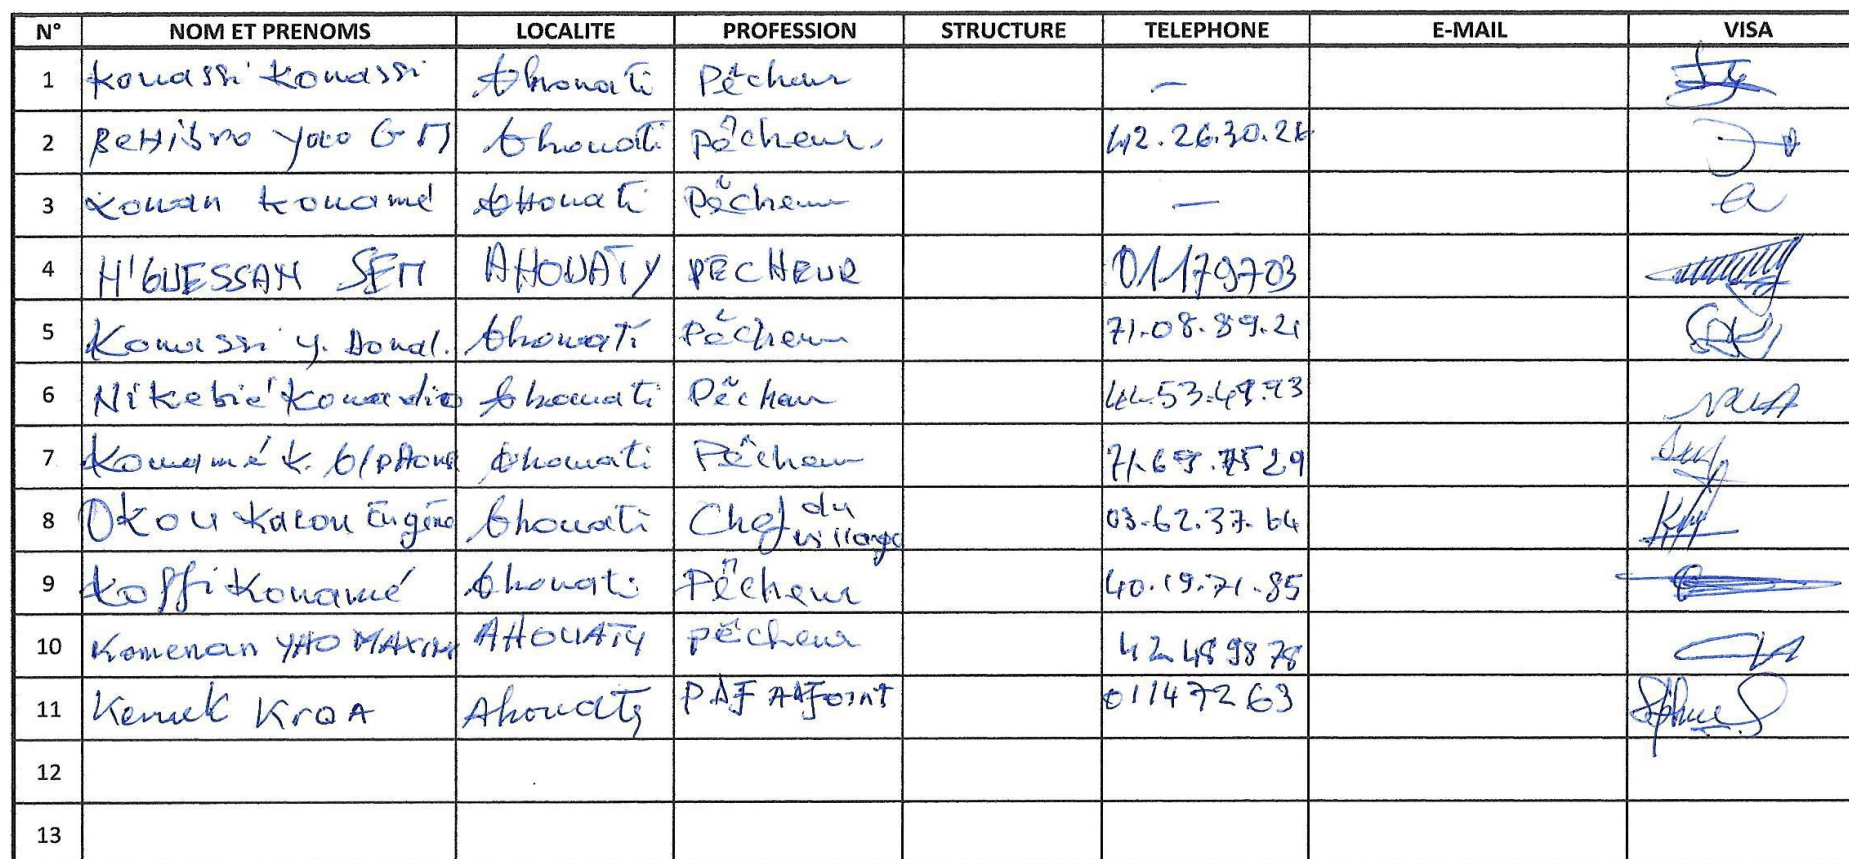 N° NOM ET PRENOMS LOCALITE PROFESSION STRUCTURE TELEPHONE E-MAIL VISA
1 Kouassi Kouassi Ahouati Pêcheur —
2 Yao Ahouati Pêcheur. 42.26.30.26
3 Konan Kouamé Ahouati Pêcheur —
4 N'GUESSAN SEM AHOUATY PECHEUR 01179703
5 Kouassi y. Donal. Ahouati Pêcheur 71.08.89.21
6 Nikebié Kouadio Ahouati Pêcheur
7 Kouamé K. Ahouati Pêcheur 71.69.7529
8 Okou Kacou Eugène Ahouati Chef du village 03.62.37.64
9 Koffi Kouamé Ahouati Pêcheur 40.19.71.85
10 Komenan YAO MAXIM AHOUATY pêcheur 42489878
11 KroA Ahouaty PDJ ADJOINT 01147263
12
13